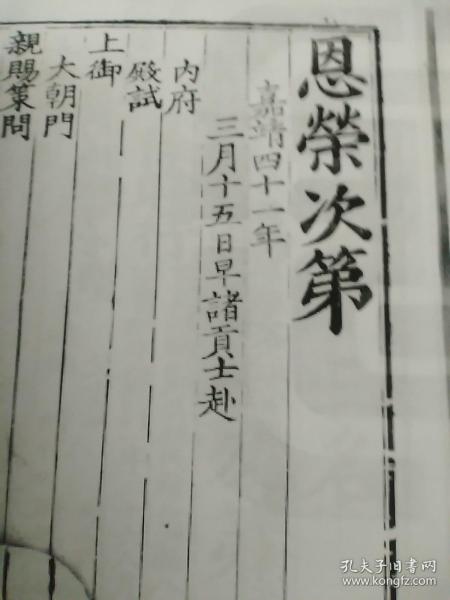 恩榮次第
嘉靖四十一年
三月十五日早諸貢士赴
內府
殿試
上御
大朝門
親賜策問
孔夫子旧书网
www.kongfz.com